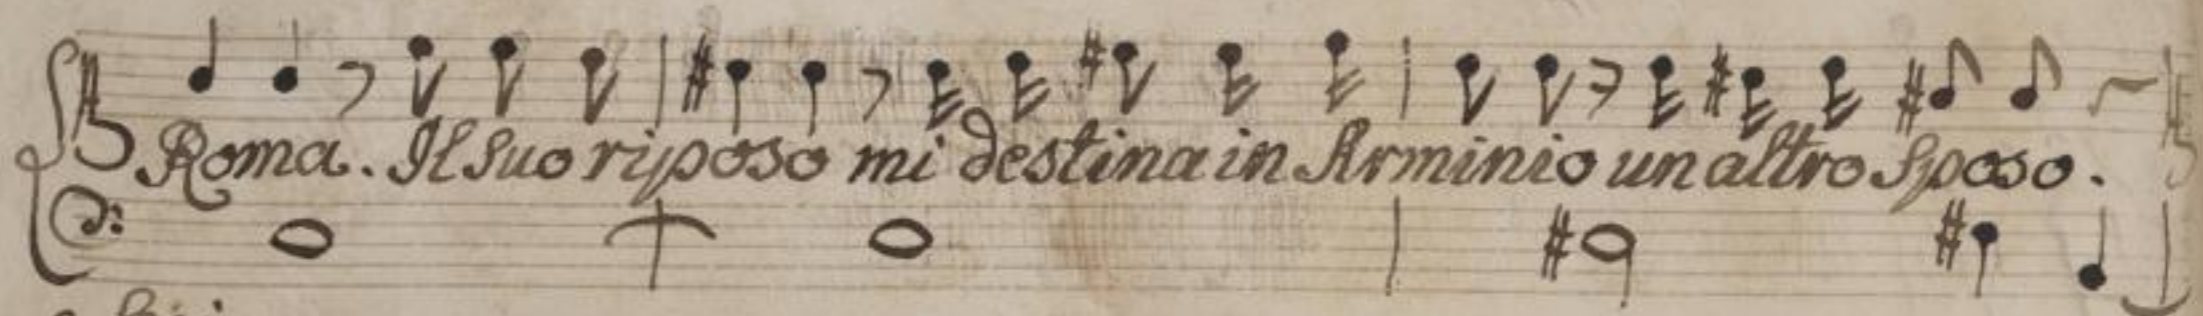 Roma. Il suo riposo mi destina in Arminio un altro sposo.